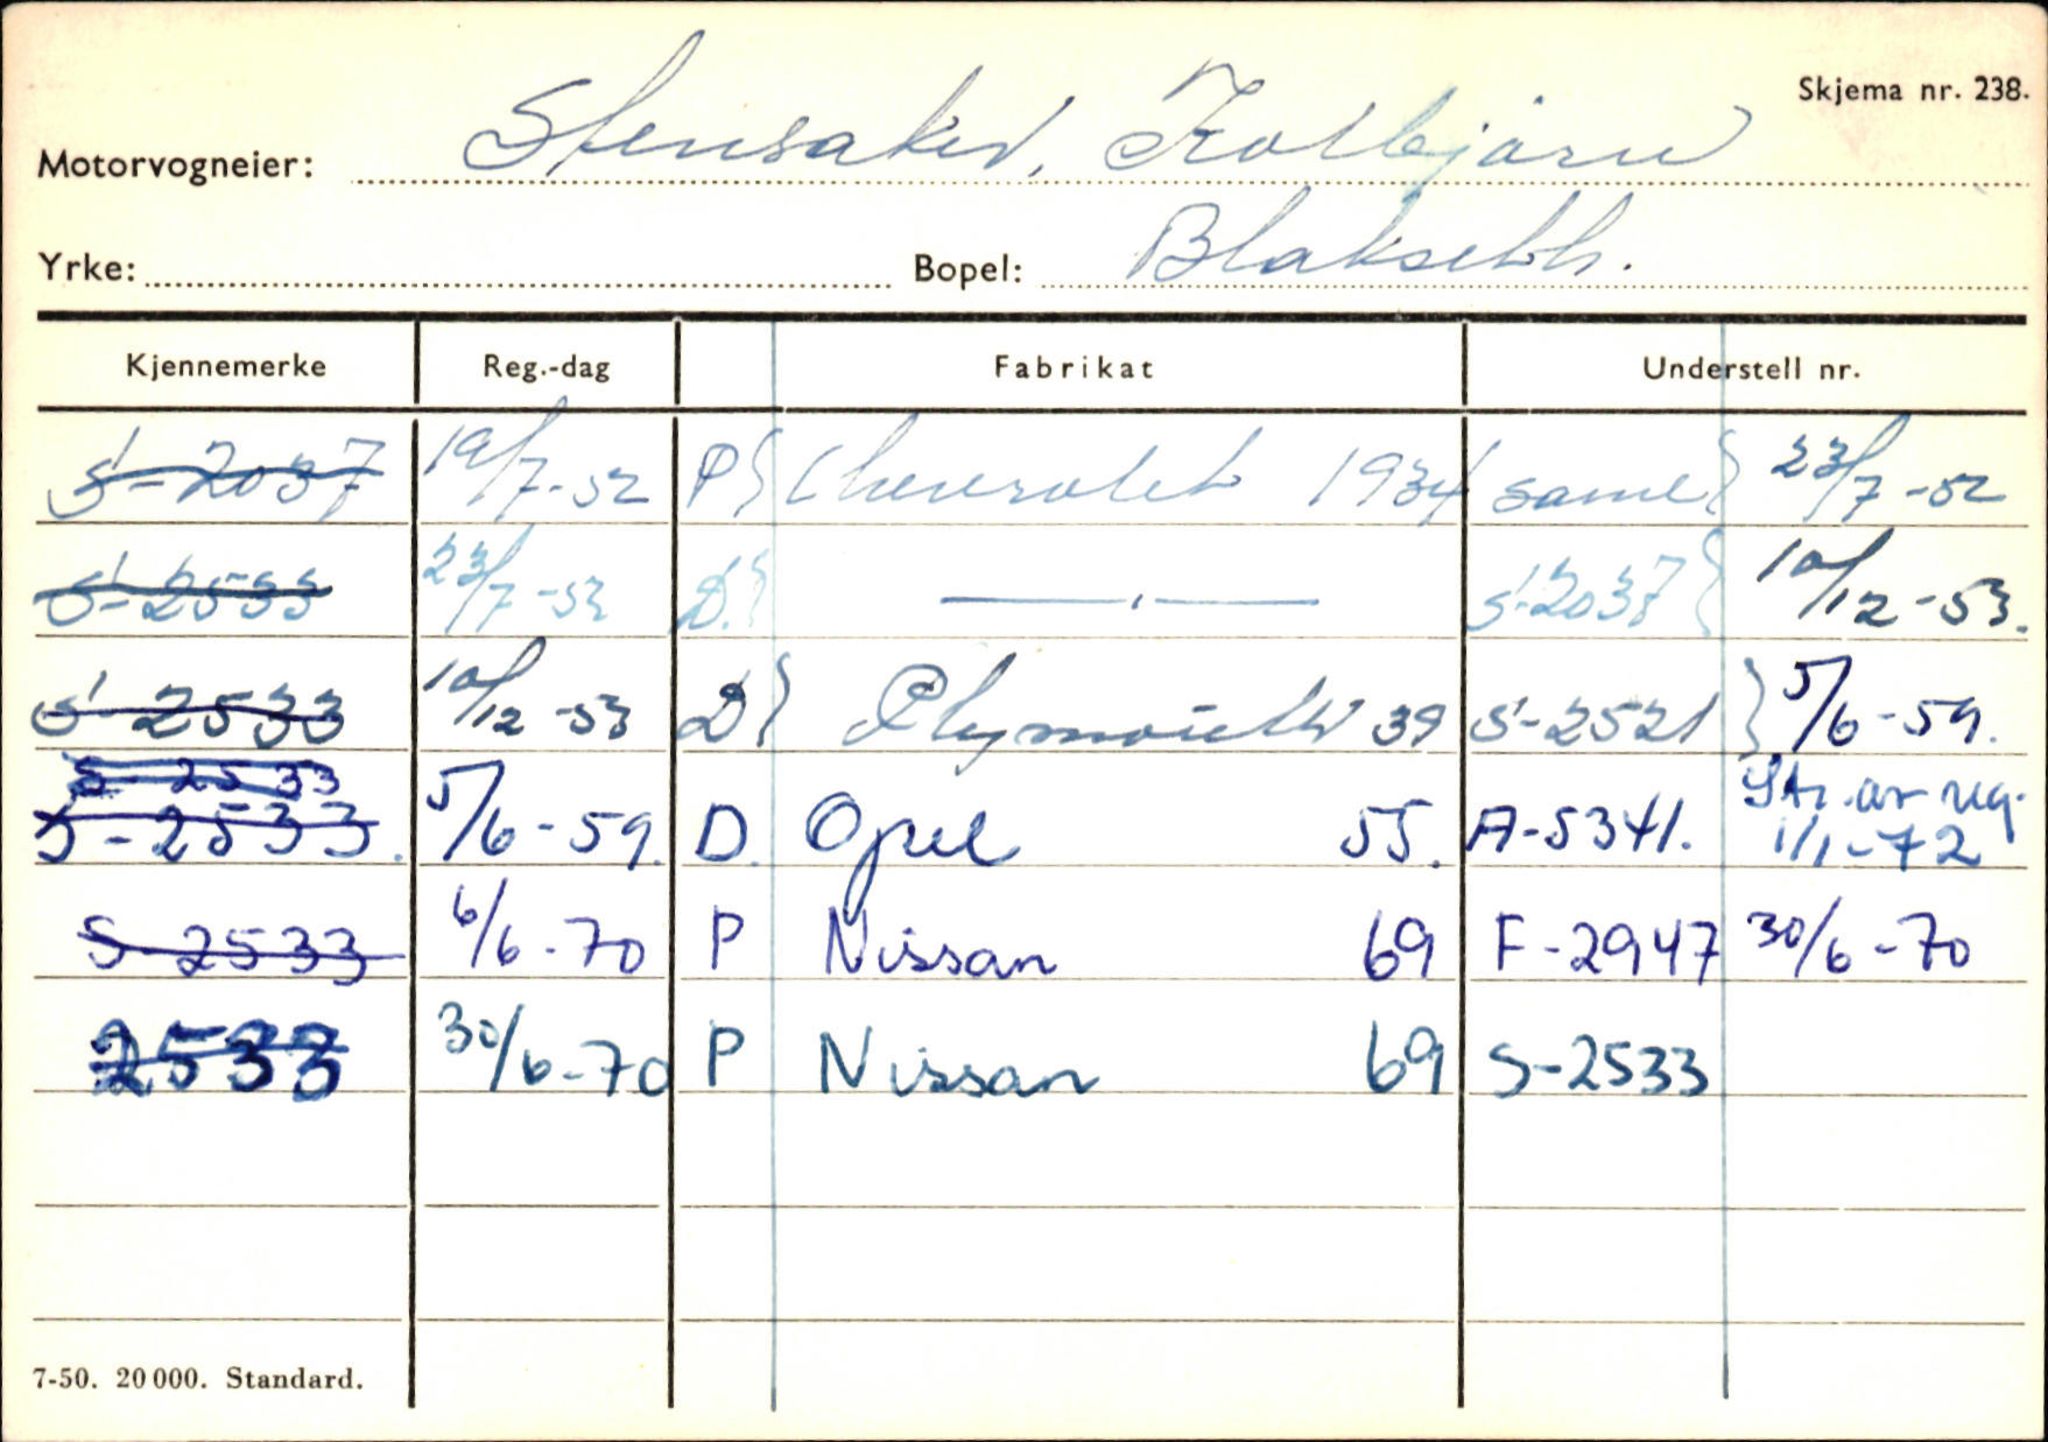 Skjema nr. 238.
Motorvogneier: Stensaker, Kolbjørn
Yrke: Bopel: Blaksæth.
Kjennemerke Reg.-dag Fabrikat Understell nr.
S-2037 19/7-52 P Chevrolet 1934 samme 23/7-52
S-2533 23/7-53 D. —〃— S-2037 10/12-53.
S-2533 10/12-53 D Plymouth 39 S-2521 5/6-59.
S-2533
S-2533. 5/6-59. D. Opel 55. A-5341. Str. av reg. 1/1-72
S-2533 6/6-70 P Nissan 69 F-2947 30/6-70
2533 30/6-70 P Nissan 69 S-2533
7-50. 20 000. Standard.